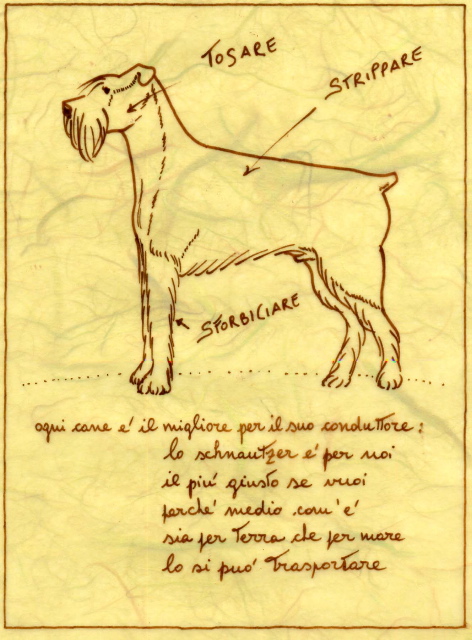 TOSARE
STRIPPARE
SFORBICIARE
ogni cane e' il migliore per il suo conduttore:
lo schnautzer e' per noi
il piu' giusto se vuoi
perche' medio com'e'
sia per terra che per mare
lo si puo' trasportare